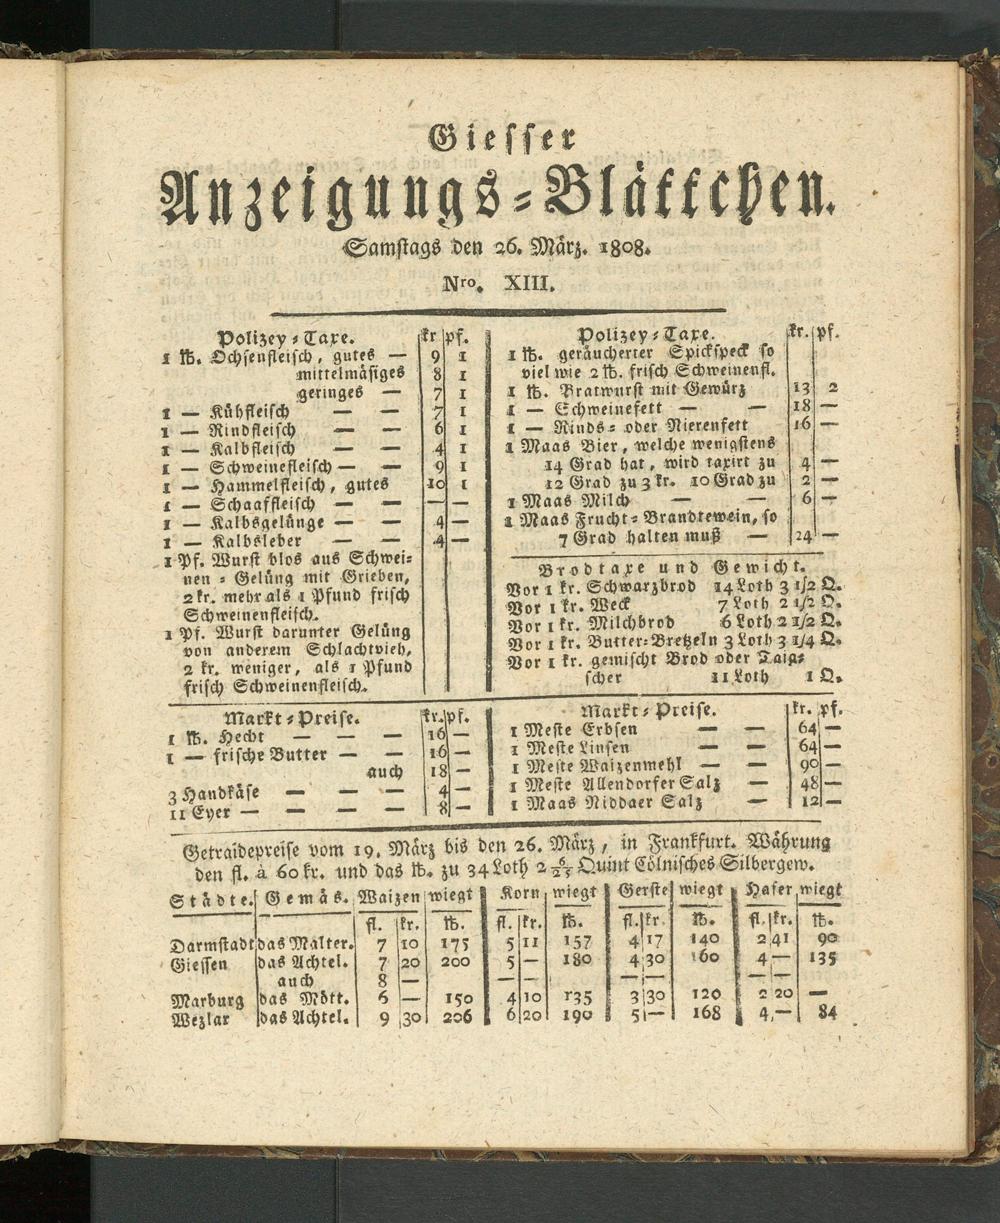 Giesser
Anzeigungs-Blättchen.
Samstags den 26. März. 1808.
Nro. XIII.
Polizey-Taxe. kr pf.
1 ℔. Ochsenfleisch, gutes — 9 1
mittelmäsiges 8 1
geringes — 7 1
1 — Kühfleisch — — 7 1
1 — Rindfleisch — — 6 1
1 — Kalbfleisch — — 4 1
1 — Schweinefleisch — — 9 1
1 — Hammelfleisch, gutes 10 1
1 — Schaaffleisch — — — —
1 — Kalbsgelünge — — 4 —
1 — Kalbsleber — — 4 —
1 Pf. Wurst blos aus Schwei-
nen-Gelüng mit Grieben,
2 kr. mehr als 1 Pfund frisch
Schweinenfleisch.
1 Pf. Wurst darunter Gelüng
von anderem Schlachtvieh,
2 kr. weniger, als 1 Pfund
frisch Schweinenfleisch.
Polizey-Taxe. kr. pf.
1 ℔. geräucherter Spickspeck so
viel wie 2 ℔. frisch Schweinenfl.
1 ℔. Bratwurst mit Gewürz 13 2
1 — Schweinefett — — 18 —
1 — Rinds- oder Nierenfett 16 —
1 Maas Bier, welche wenigstens
14 Grad hat, wird taxirt zu 4 —
12 Grad zu 3 kr. 10 Grad zu 2 —
1 Maas Milch — — 6 —
1 Maas Frucht-Brandtewein, so
7 Grad halten muß — 24 —
Brodtaxe und Gewicht.
Vor 1 kr. Schwarzbrod 14 Loth 3 1/2 Q.
Vor 1 kr. Weck 7 Loth 2 1/2 Q.
Vor 1 kr. Milchbrod 6 Loth 2 1/2 Q.
Vor 1 kr. Butter-Bretzeln 3 Loth 3 1/4 Q.
Vor 1 kr. gemischt Brod oder Taig-
scher 11 Loth 1 Q.
Markt-Preise. kr. pf.
1 ℔. Hecht — — — 16 —
1 — frische Butter — — 16 —
auch 18 —
3 Handkäse — — — 4 —
11 Eyer — — — — 8 —
Markt-Preise. kr. pf.
1 Meste Erbsen — — 64 —
1 Meste Linsen — — 64 —
1 Meste Waizenmehl — — 90 —
1 Meste Allendorfer Salz — 48 —
1 Maas Niddaer Salz — 12 —
Getraidepreise vom 19. März bis den 26. März, in Frankfurt. Währung
den fl. à 60 kr. und das ℔. zu 34 Loth 2 6/25 Quint Cölnisches Silbergew.
Städte. Gemäs. Waizen wiegt Korn wiegt Gerste wiegt Hafer wiegt
fl. kr. ℔. fl. kr. ℔. fl. kr. ℔. fl. kr. ℔.
Darmstadt das Malter. 7 10 175 5 11 157 4 17 140 2 41 90
Giessen das Achtel. 7 20 200 5 — 180 4 30 160 4 — 135
auch 8 — — — — — — —
Marburg das Mött. 6 — 150 4 10 135 3 30 120 2 20 —
Wezlar das Achtel. 9 30 206 6 20 190 5 — 168 4 — 84